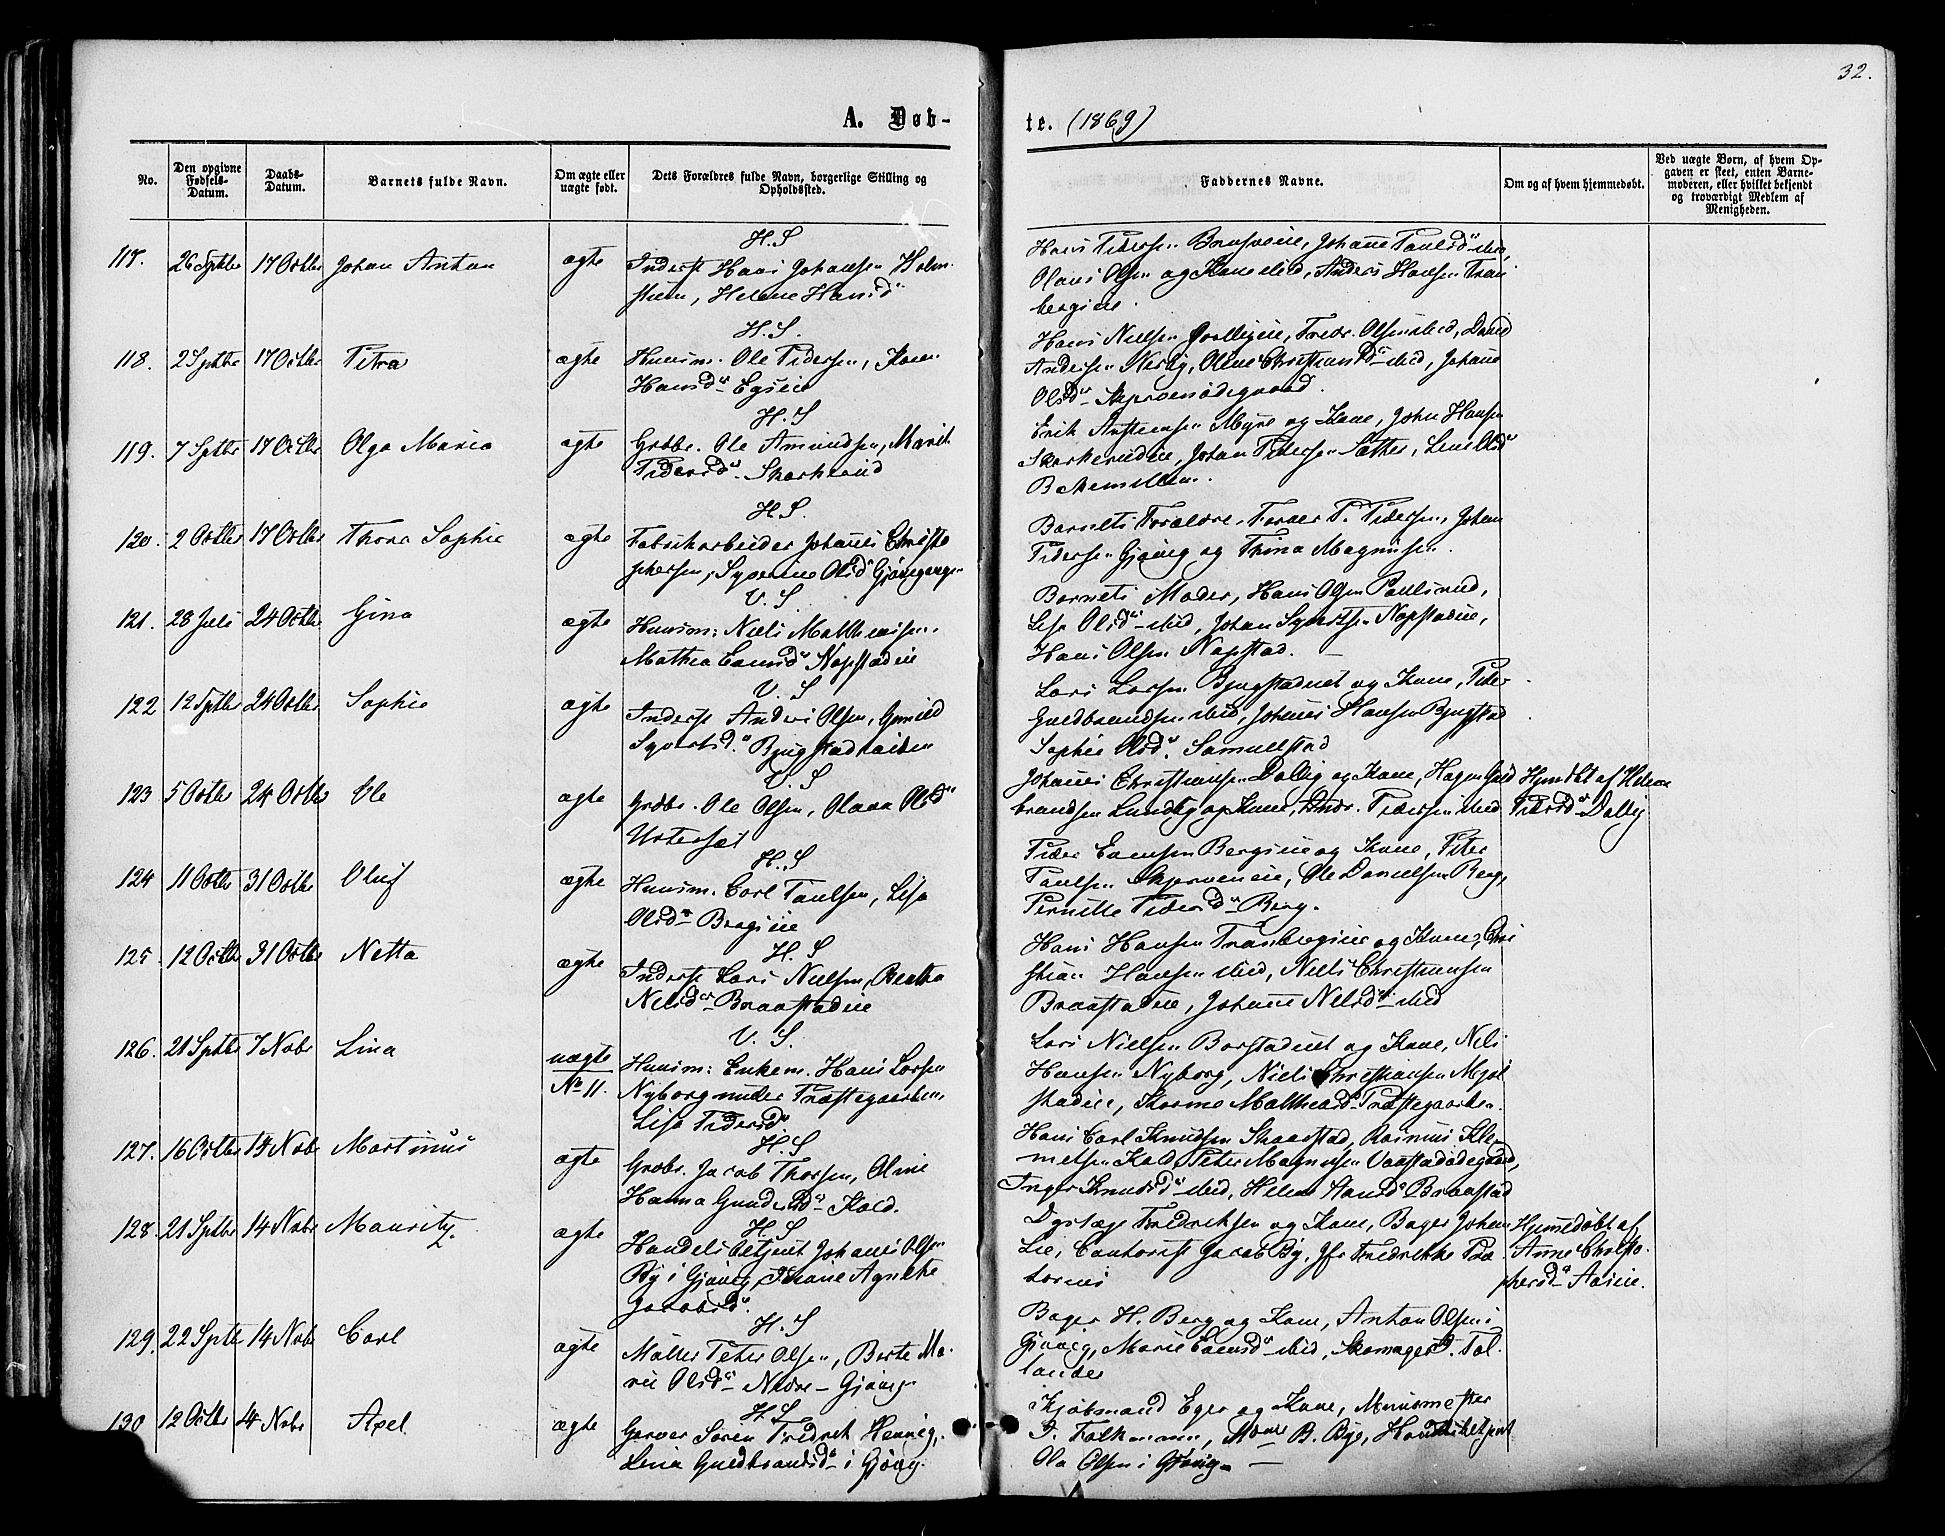 32.
A. Døb-
te. (1869)
No.
Den opgivne Fødsels-Datum.
Daabs-Datum.
Barnets fulde Navn.
Om ægte eller uægte født.
Dets Forældres fulde Navn, borgerlige Stilling og Opholdssted.
Faddernes Navne.
Om og af hvem hjemmedøbt.
Ved uægte Børn, af hvem Opgaven er skeet, enten Barnemoderen, eller hvilket bekjendt og troværdigt Medlem af Menigheden.
117. 26 Septbr 17 Octbr Johan Anton ægte
H.S
Inderst Hans Johansen Holm-
stuen, Helene Hansd
Hans Pedersen Brusveie, Johanne Paulsd
Olaus Olsen og Kone ibid, Anders Hansen Tran
bergeie.
118. 2 Septbr 17 Octbr Petra ægte
H.S.
Huusm. Ole Pedersen, Karen
Hansd Egseie
Hans Nielsen eie, Fredr. Olsen ibid,
Andersen Nerby, Oline Christiansd ibid, Johanne
Olsd Skjervenødegaard.
119. 7 Septbr 17 Octbr Olga Maria ægte
H.S
Grdbr. Ole Amundsen, Marit
Pedersd Skarkerud
Erik Austensen Myre og Kone, John Hansen
Skarkerudeie, Johan Pedersen Sæther, Lene Olsd
Bakemellem.
120. 2 Octbr 17 Octbr Thora Sophie ægte
H.S.
Fabrikarbeider Johannes Christo
phersen, Syverine Olsd
Barnets Forældre, Farver P. Pedersen, Johan
Pedersen Gjøvig og Trina Magnussen.
121. 28 Juli 24 Octbr Gina ægte
V.S
Huusm: Niels Matthiesen,
Mathea Evensd Nøpstadeie
Barnets Moder, Hans Olsen Paulsrud,
Lisa Olsd ibid, Johan Syvertsen Nøpstadeie,
Hans Olsen Nøpstad.
122 12 Septbr 24 Octbr Sophie ægte
V.S
Inderst Anders Olsen, Gunild
Syvertsd. Bjugstad
Lars Larsen Bjugstadeiet og Kone, Peder
Guldbrandsen ibid, Johannes Hansen Bjugstad
Sophie Olsd. Samuelstad
123 5 Octbr 24 Octbr Ole ægte
V.S
Grdbr. Ole Olsen, Olava Olsd
Johannes Christiansen Dalby og Kone, Hagen Guld
brandsen Lundby og Kone, Andr. Pedersen ibid
Hjemdbt af Helene
Pedersd Dalby
124 11 Octbr 31 Octbr Oluf ægte
H.S
Huusm. Carl Paulsen, Lisa
Olsd Bergseie
Peder Evensen Bergseie og Kone, Peter
Paulsen Skjerveneie, Ole Danielsen Berg,
Pernille Pedersd Berg.
125 12 Octbr 31 Octbr Netta ægte
H.S
Inderst Lars Nielsen, Berthe
Nilsd Braastadeie
Hans Hansen Tranbergeie og Kone, Chri
stian Hansen ibid, Niels Christiansen
Braastadeie, Johanne Nelsd ibid
126. 21 Septbr 7 Novbr Lina uægte
No 11.
V.S.
Huusm: Enkem. Hans Larsen
Nyborg under Præstegaarden,
Lisa Pedersd.
Lars Nielsen Borstadeiet og Kone, Nils
Hansen Nyborg, Niels Christiansen Mjøl
stadeie, Karine Mathead Præstegaarden.
127. 16 Octbr 14 Novbr Martinus ægte
H.S
Grdbr. Jacob Thorsen, Oline
Hanna Gundersd Kold.
Hans Carl Knudsen Skaarstad, Rasmus Kle-
metsen Kold, Peter Magnussen Vaastadødegaard,
Inger Knudsd ibid, Helene Hansd Braastad
128. 21 Septbr 14 Novbr Mauritz. ægte
H.S
Handelsbetjent Johannes Olsen
By i Gjøvig, Agnethe
Jacobsd.
Fredriksen og Kone, Bager Johan
Lie, Cantorist Jacob By, Jfr Fredrikke Præ
torius
Hjemmedøbt af
Anne Christo-
phersd Aaseie.
129. 22 Septbr 14 Novbr Carl ægte
H.S
Møller Peter Olsen, Berte Ma-
rie Olsd Nedre-Gjøvig
Bager H. Berg og Kone, Anton Olsen i
Gjøvig, Marie Evensd ibid, Skomager P. Tol-
lander
130 12 Octbr 14 Novbr Axel ægte
H.S
Garver Søren Fredrek Hennig,
Lina Guldbrandsd i Gjøvig.
Kjøbmand Eger og Kone, Muurmester
J. Falkmann, B. Bye, Handelsbetjent
Ola Olsen i Gjøvig.